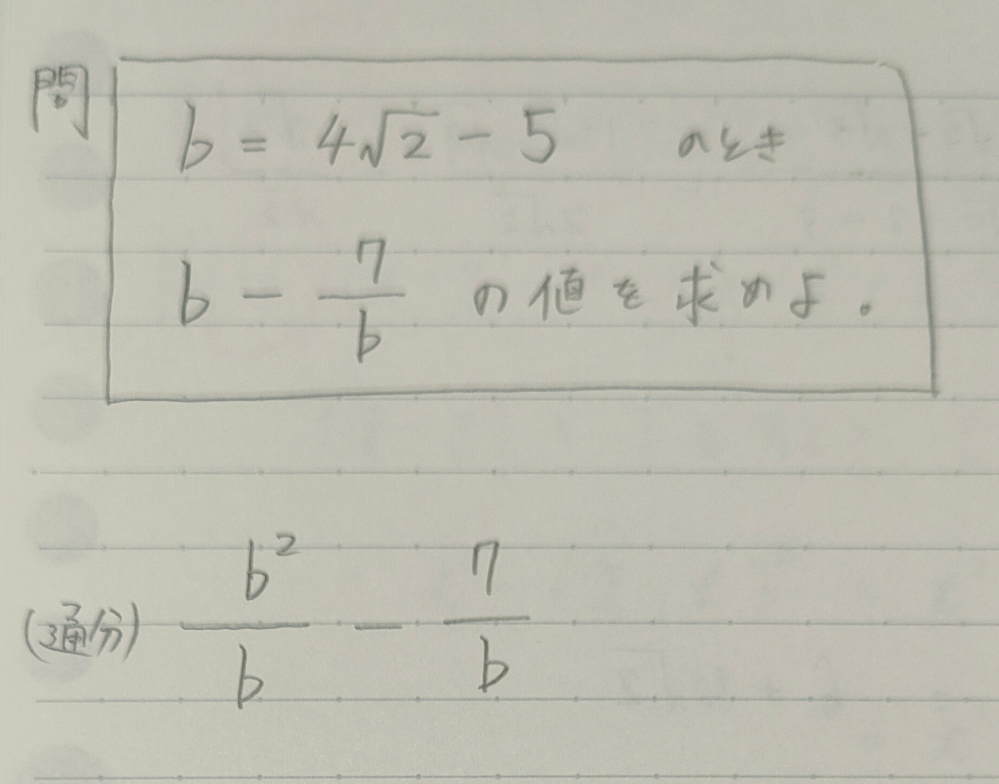 問
b = 4√2 - 5 のとき
b - 7/b の値を求めよ。
(通分) b²/b - 7/b